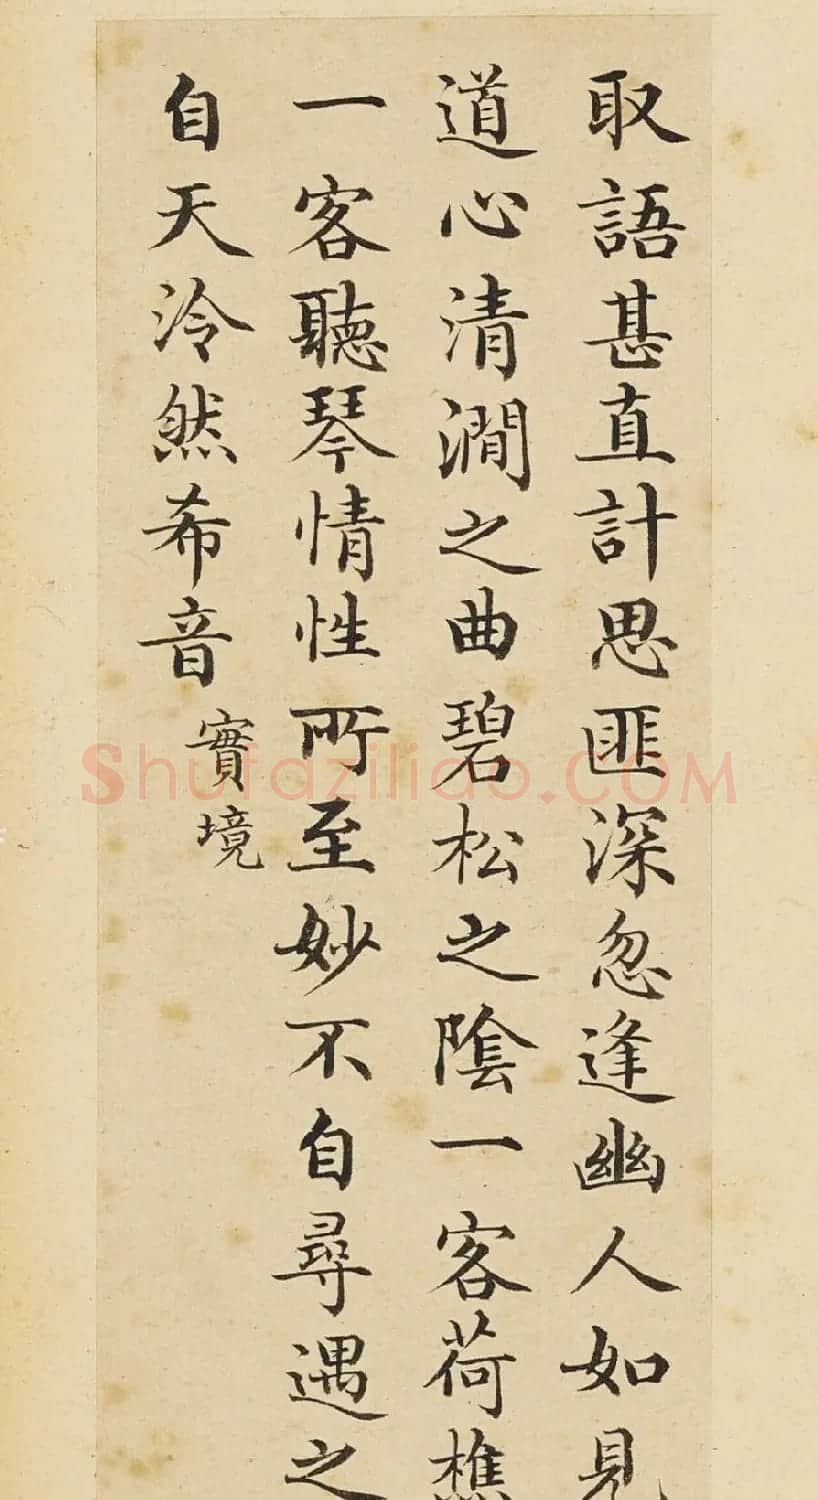 取語甚直計思匪深忽逢幽人如見
道心清澗之曲碧松之陰一客荷樵
一客聽琴情性所至妙不自尋遇之
自天泠然希音
實境
Shufaziliao.COM